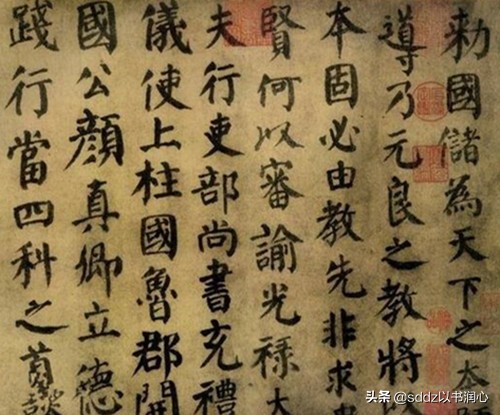 勅國儲為天下之
導乃元良之教將
本固必由教先非求
賢何以審諭光祿大
夫行吏部尚書充禮
儀使上柱國魯郡開
國公顏真卿立德
踐行當四科之
头条 @sddz以书润心